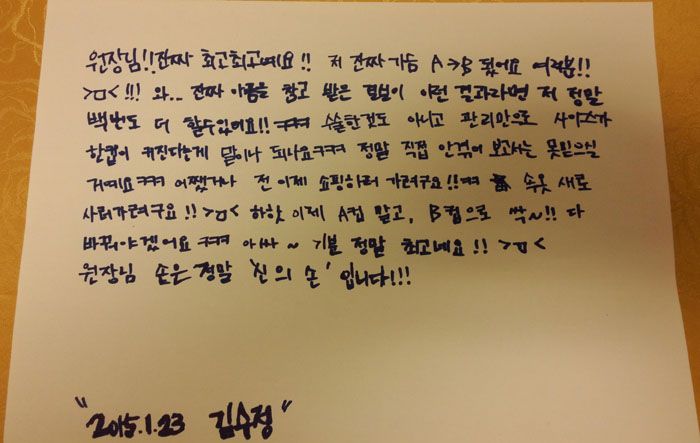 원장님!! 진짜 최고최고예요!! 저 진짜 가슴 A→B 됐어요 여러분!!
>ㅁ< !!! 와.. 진짜 아픔을 참고 받은 결실이 이런 결과라면 저 정말
백번도 더 할수있어요!! ㅋㅋㅋ 수술한것도 아니고 관리만으로 사이즈가
한컵이 커진다는게 말이나 되나요ㅋㅋㅋ 정말 직접 안겪어 보고서는 못믿으실
거예요ㅋㅋㅋ 어쨌거나 전 이제 쇼핑하러 가려구요!!ㅋㅋ 속옷 새로
사러가려구요!! >ㅁ< 하핫 이제 A컵 말고, B컵으로 싹~!! 다
바꿔야겠어요 ㅋㅋㅋ 아싸~ 기분 정말 최고네요!! >ㅁ<
원장님 손은 정말 '신의 손' 입니다!!!
"2015.1.23 김수정"